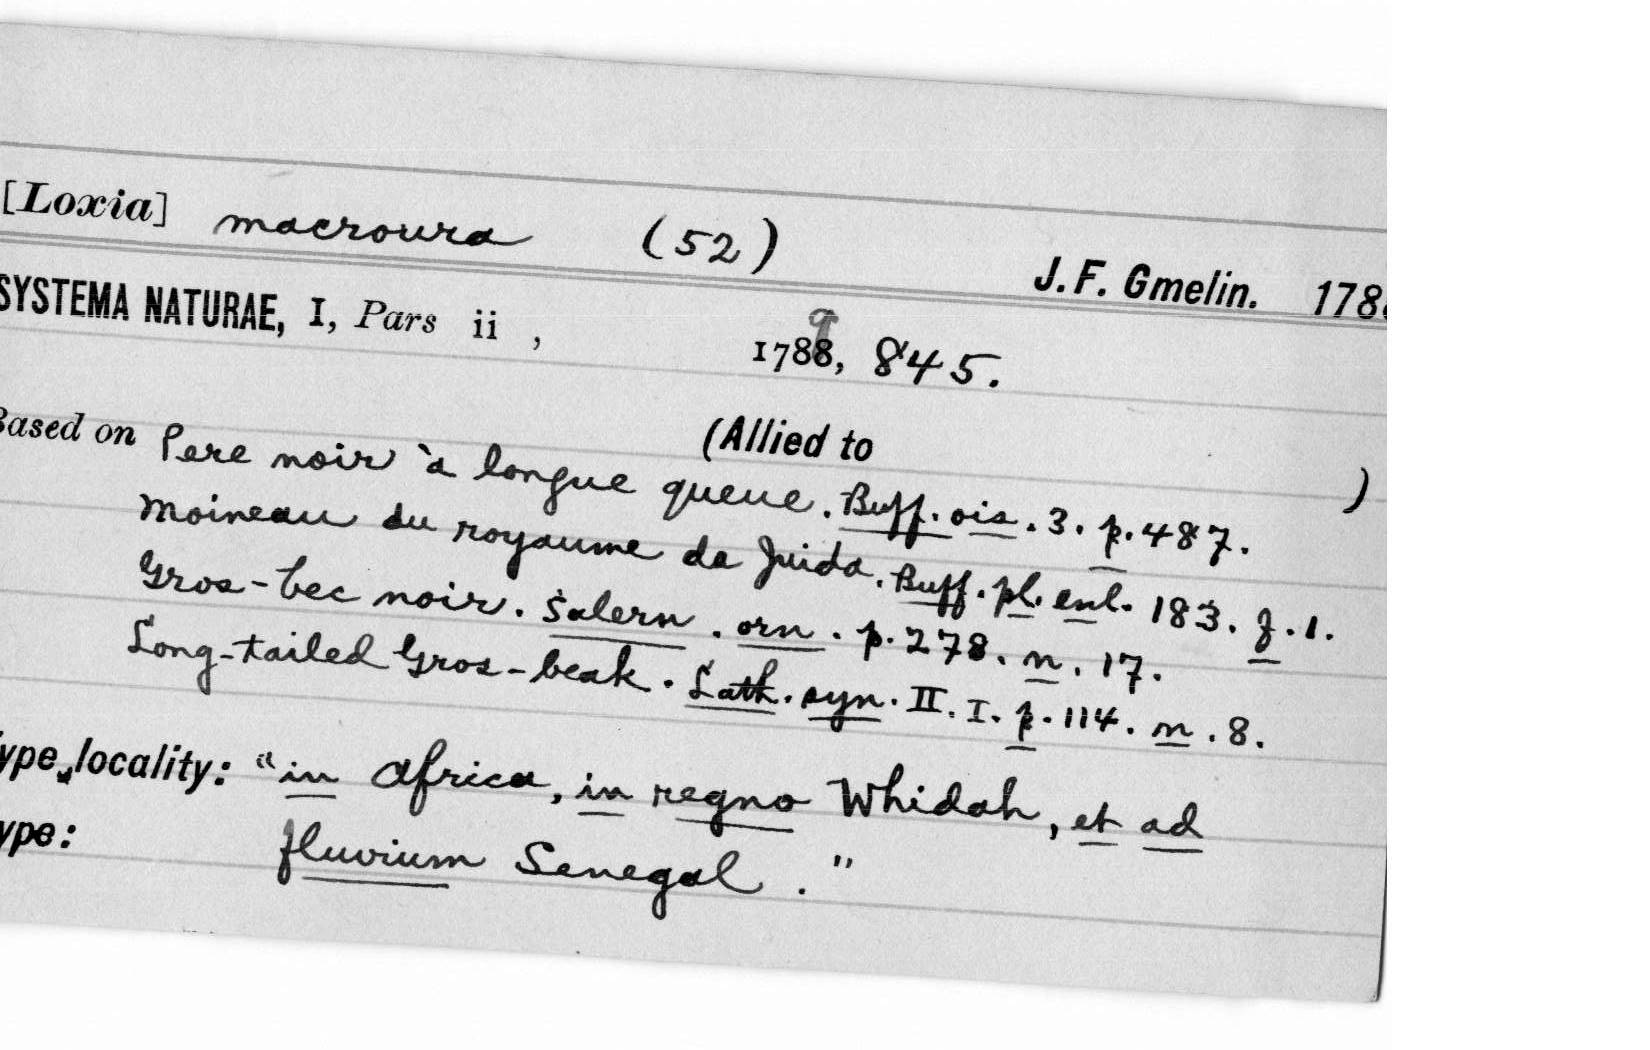 [Loxia] macroura (52)
J. F. Gmelin. 178
SYSTEMA NATURAE, I, Pars ii , 1789, 845.
Based on (Allied to )
Pere noir à longue queue. Buff. ois. 3. p. 487.
Moineau du royaume de Juida. Buff. pl. enl. 183. f. 1.
Gros-bec noir. Salern. orn. p. 278. n. 17.
Long-tailed Gros-beak. Lath. syn. II. I. p. 114. n. 8.
Type locality: "in Africa, in regno Whidah, et ad
Type: fluvium Senegal."